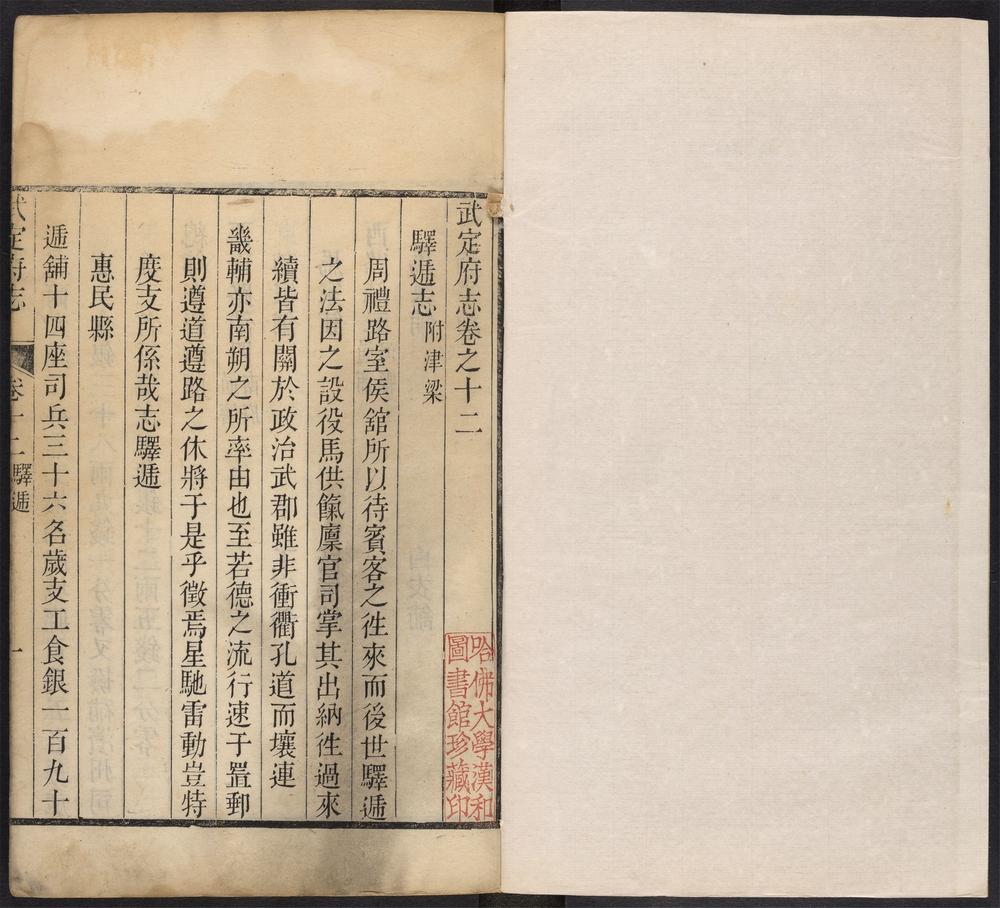 武定府志卷之十二
驛遞志附津梁
周禮路室侯舘所以待賓客之徃來而後世驛遞
之法因之設役馬供餼廩官司掌其出納徃過來
續皆有關於政治武郡雖非衝衢孔道而壤連
畿輔亦南朔之所率由也至若德之流行速于置郵
則遵道遵路之休將于是乎徵焉星馳雷動豈特
度支所係哉志驛遞
惠民縣
遞舖十四座司兵三十六名歲支工食銀一百九十
武定府志 卷十二驛遞 一
哈佛大學漢和
圖書館珍藏印